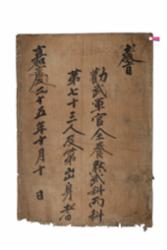 敎旨
勸武軍官全養 武科丙科
第七十三人及第出身者
嘉慶二十五年十月十 日